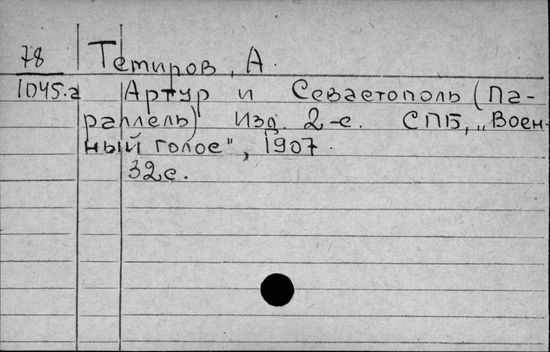 78 Темиров, А.
1045.а Артур и Севастополь (Па-
раллель) Изд. 2-е. СПБ, „Воен-
ный голос", 1907.
32с.